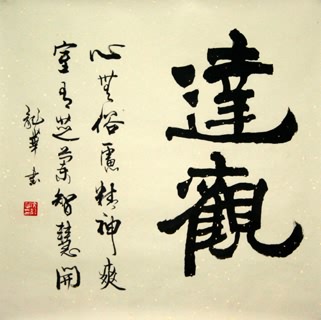 達觀
心無俗慮精神爽
室有芝蘭智慧開
龍華書